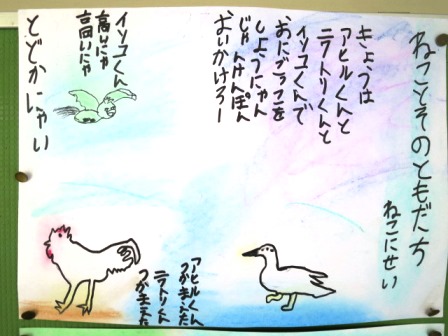 ねことそのともだち
ねこにせい
きょうは
アヒルくんと
ニワトリくんと
インコくんで
おにごっこを
しようにゃん
じゃんけんぽん
おいかけろー
インコくん
高いにゃ
高いにゃ
とどかにゃい
アヒルくん
つかまえた
ニワトリくん
つかまえた